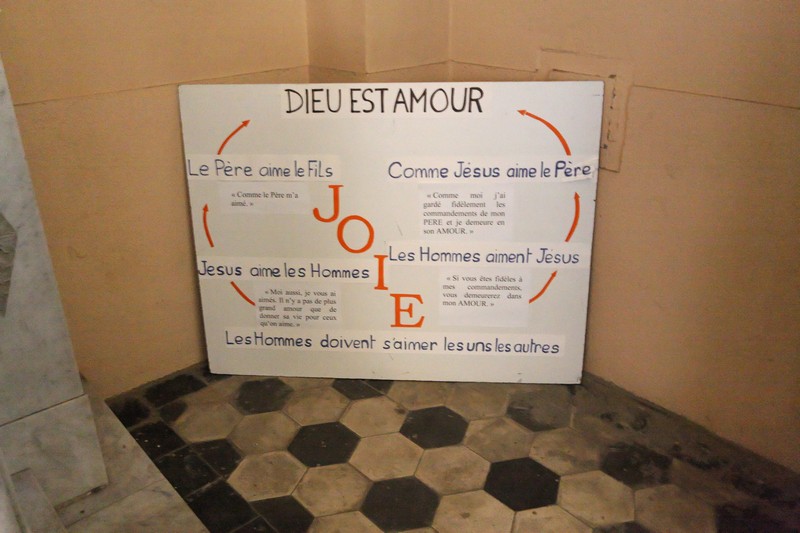 DIEU EST AMOUR
Le Père aime le Fils
« Comme le Père m'a
aimé. »
Comme Jésus aime le Père
« Comme moi j'ai
gardé fidèlement les
commandements de mon
PERE et je demeure en
son AMOUR. »
JOIE
Jesus aime les Hommes
« Moi aussi, je vous ai
aimés. Il n'y a pas de plus
grand amour que de
donner sa vie pour ceux
qu'on aime. »
Les Hommes aiment Jésus
« Si vous êtes fidèles à
mes commandements,
vous demeurerez dans
mon AMOUR. »
Les Hommes doivent s'aimer les uns les autres